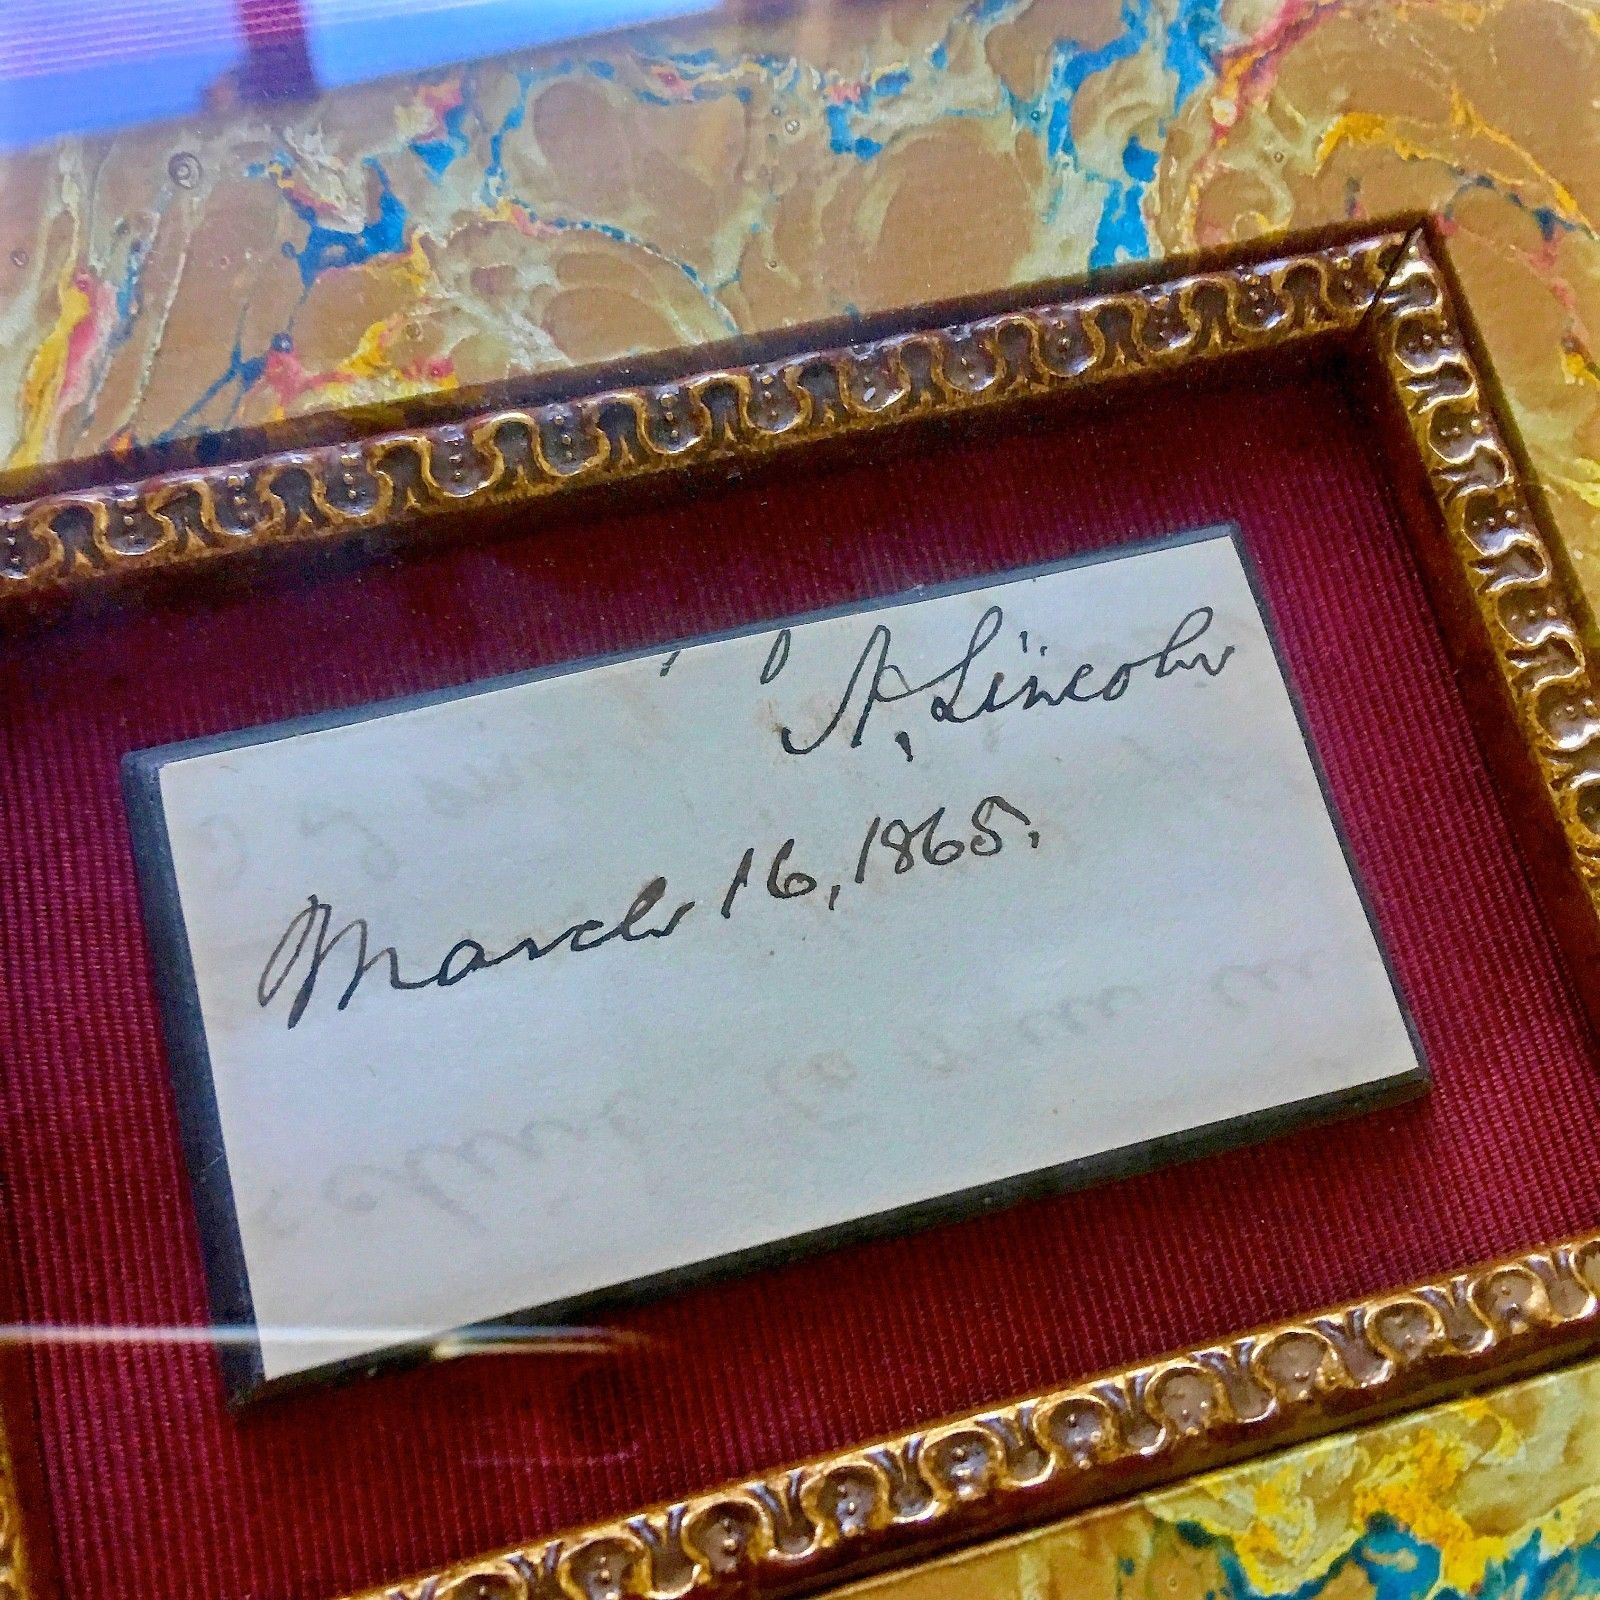 A. Lincoln
March 16, 1865.